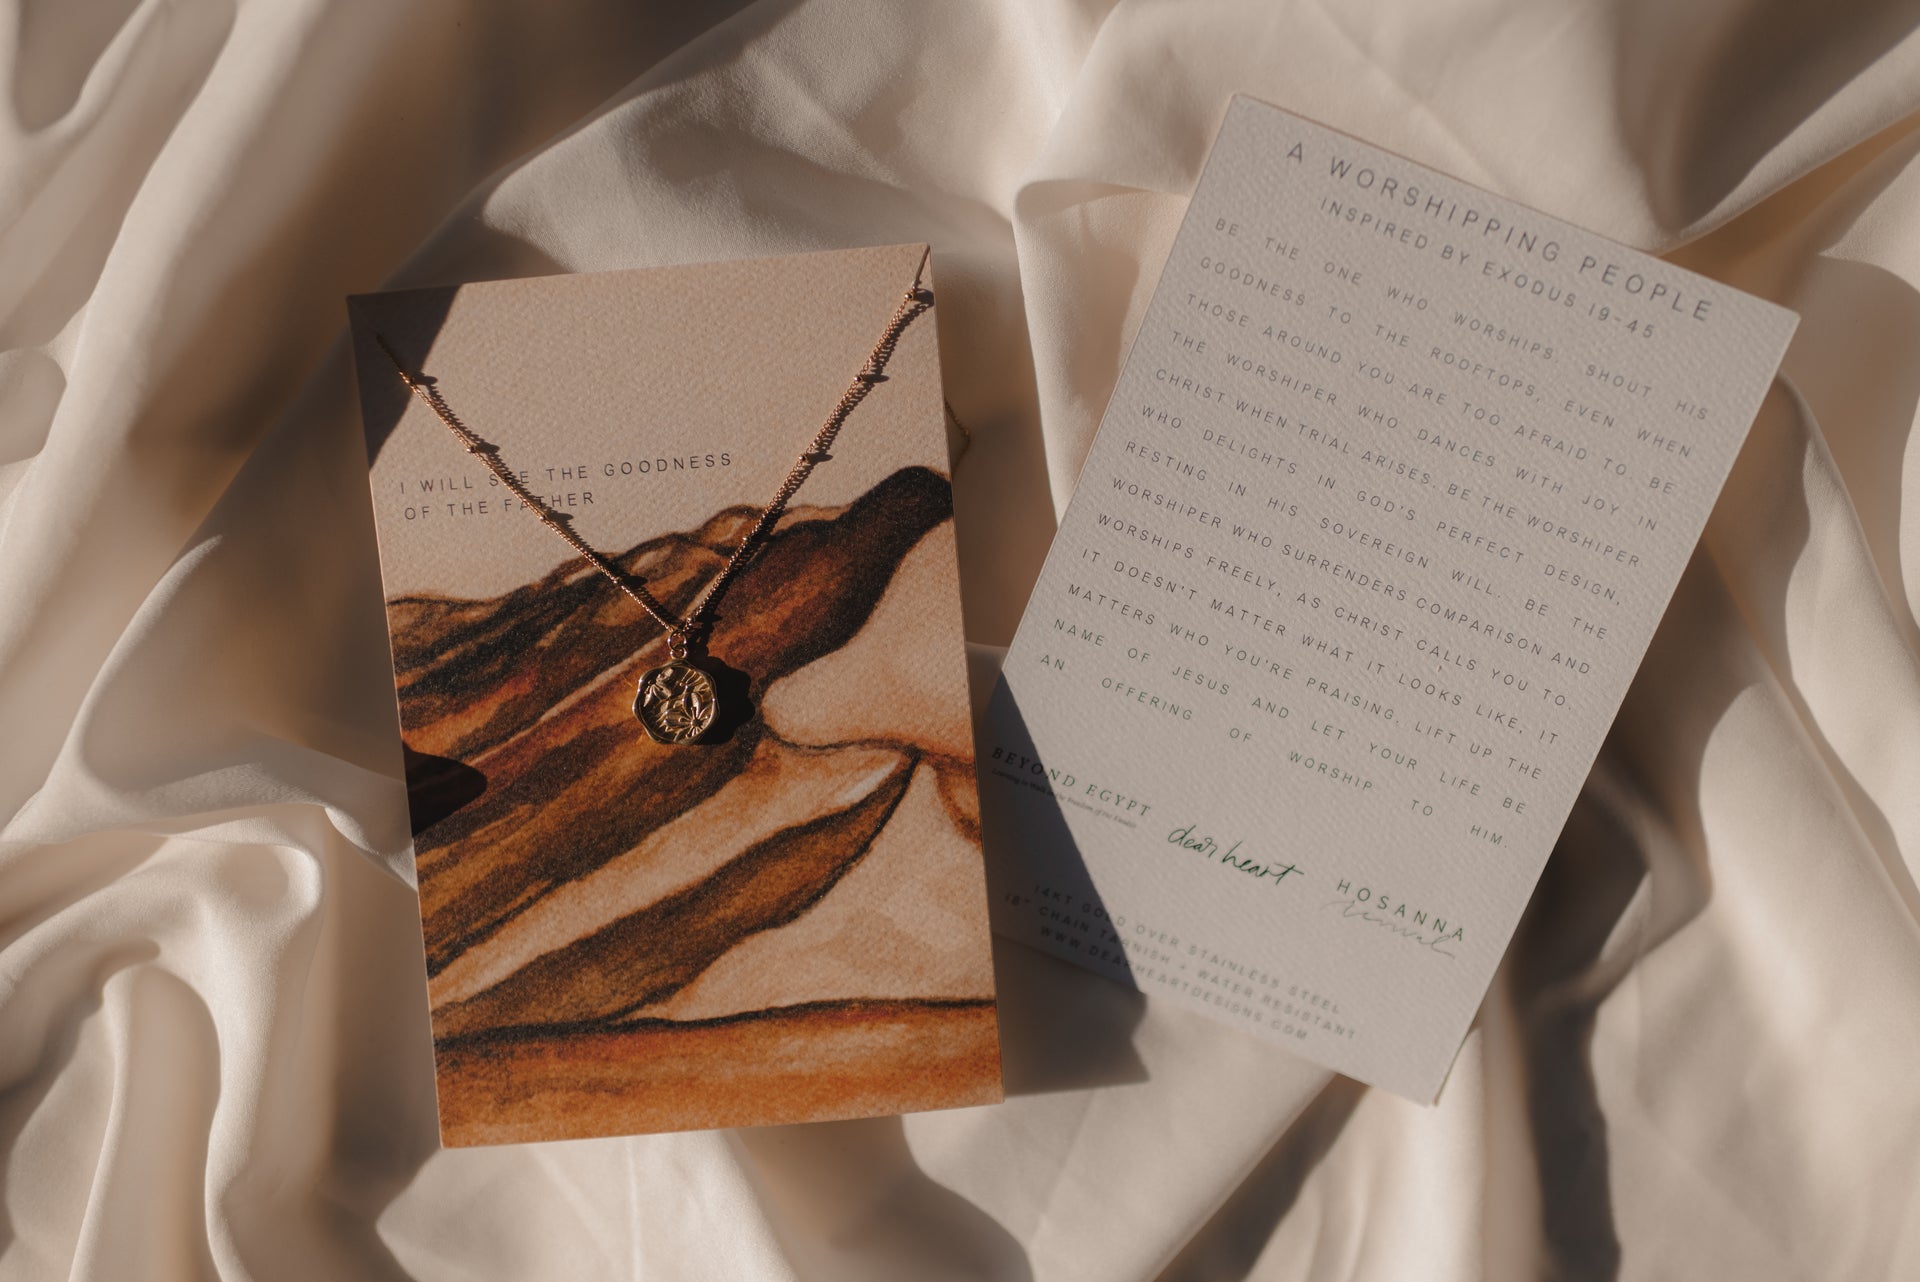 I WILL SEE THE GOODNESS
OF THE FATHER
A WORSHIPPING PEOPLE
INSPIRED BY EXODUS 19-45
BE THE ONE WHO WORSHIPS. SHOUT HIS
GOODNESS TO THE ROOFTOPS, EVEN WHEN
THOSE AROUND YOU ARE TOO AFRAID TO. BE
THE WORSHIPER WHO DANCES WITH JOY IN
CHRIST WHEN TRIAL ARISES. BE THE WORSHIPER
WHO DELIGHTS IN GOD'S PERFECT DESIGN,
RESTING IN HIS SOVEREIGN WILL. BE THE
WORSHIPER WHO SURRENDERS COMPARISON AND
WORSHIPS FREELY, AS CHRIST CALLS YOU TO.
IT DOESN'T MATTER WHAT IT LOOKS LIKE, IT
MATTERS WHO YOU'RE PRAISING. LIFT UP THE
NAME OF JESUS AND LET YOUR LIFE BE
AN OFFERING OF WORSHIP TO HIM.
BEYOND EGYPT
Learning to Walk in the Freedom of Our Exodus
dear heart
HOSANNA
revival
14KT GOLD OVER STAINLESS STEEL
18" CHAIN TARNISH + WATER RESISTANT
WWW.DEARHEARTDESIGNS.COM